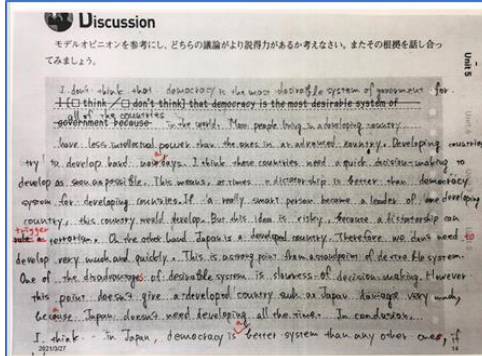 Discussion
モデルオピニオンを参考にし、どちらの議論がより説得力があるか考えなさい。またその根拠を話し合っ
てみましょう。
Unit 5
I don't think that democracy is the most desirable system of government for
I [□ think / ☑ don't think] that democracy is the most desirable system of
all of the countries
government because in the world. Many people living in a developing country
have less intellectual power than the ones in an advanced country. Developing countries
try to develop hard nowadays. I think these countries need a quick decision-making to
develop as soon as possible. This means, at times a dictatorship is better than democracy
system for developing countries. If a really smart person become a leader of one developing
country, this country would develop. But this idea is risky, because a dictatorship can
trigger
terrorism. On the other hand Japan is a developed country. Therefore we don't need to
develop very much and quickly. This is a strong point from a standpoint of desirable system.
One of the disadvantages of desirable system is slowness of decision-making. However
this point doesn't give a developed country such as Japan damage very much,
because Japan doesn't need developing all the time. In conclusion,
I think in Japan, democracy is a better system than any other ones, if
2021/3/27